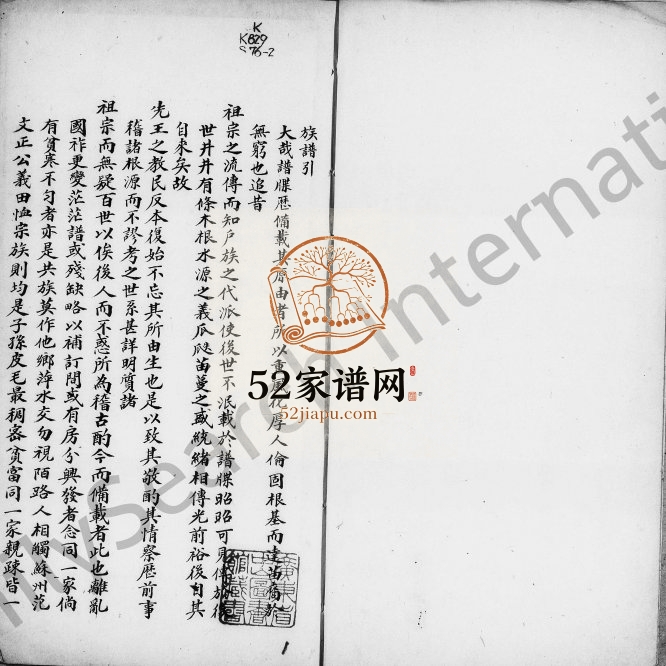 K
K829
S76-2
族譜引
大哉譜牒歷備載其原由者所以重風化厚人倫固根基而達苗裔於
無窮也追昔
祖宗之流傳而知戶族之代派使後世不泯載於譜牒昭昭可見傳於後
世井井有條木根水源之義瓜瓞苗蔓之盛統緒相傳光前裕後自其
自來矣故
先王之教民反本復始不忘其所由生也是以致其敬酌其情察歷前事
稽諸根源而不謬考之世系甚詳明質諸
祖宗而無疑百世以俟後人而不惑所為稽古酌今而備載者此也離亂
國祚更變茫茫譜或殘缺略以補訂間或有房分興發者念同一家倘
有貧寒不勻者亦是共族莫作他鄉萍水交勿視陌路人相觸蘇州范
文正公義田恤宗族則均是子孫皮毛最稠密貧富同一家親疎皆一
1
52家谱网
52jiapu.com
MySearch International